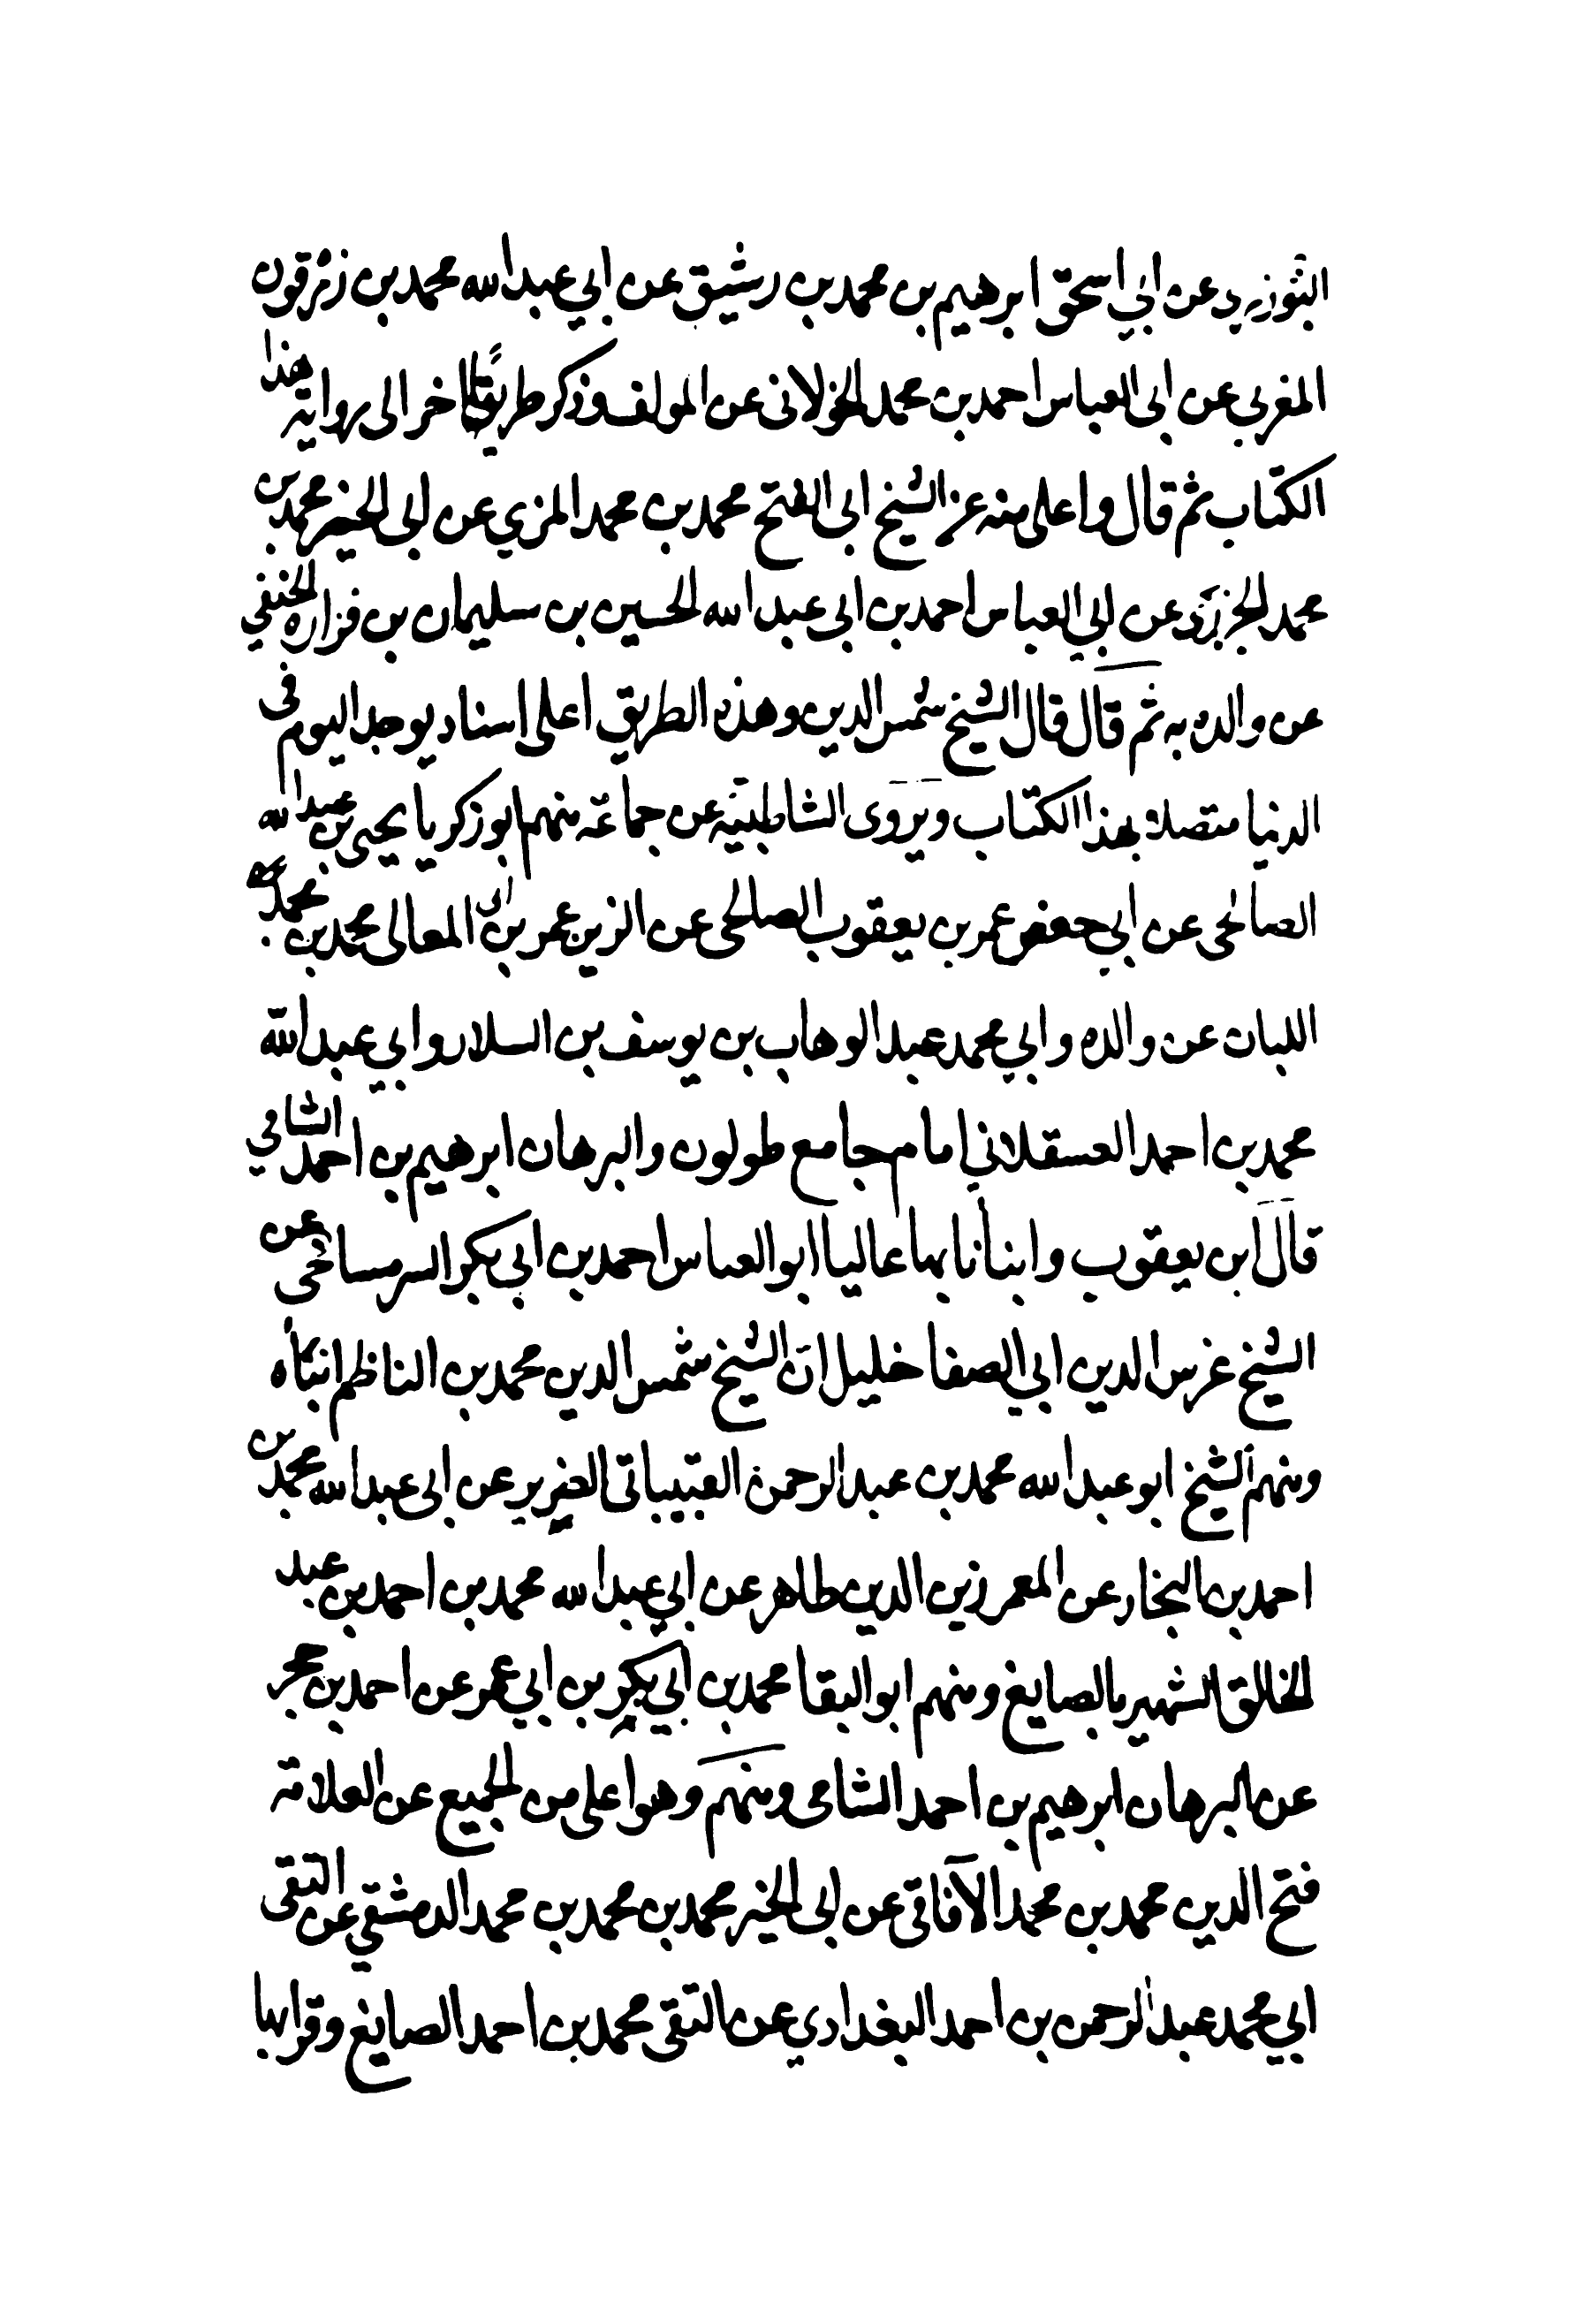 التوزري عن ابي اسحق ابرهيم بن محمد بن رشيق عن ابي عبد الله محمد بن زرقون
المغربي عن ابى العباس احمد بن محمد الخولانى عن المولف وذكر طريقا اخر الى رواية هذا
الكتاب ثم قال واعلى منه عن الشيخ ابى الفتح محمد بن محمد المزي عن ابى الخير محمد بن
محمد الجزري عن ابي العباس احمد بن ابي عبد الله الحسين بن سليمان بن فزاره الحنفي
عن والده به ثم قال قال الشيخ شمس الدين وهذه الطريق اعلى اسناد يوجد اليوم فى
الدنيا متصلا بهذا الكتاب ويروى الشاطبية عن جماعة منهم ابو زكريا يحيى بن عبد الله
الصالحى عن ابي جعفر عمر بن يعقوب الصلحى عن الزين عمر بن ابى المعالى محمد بن محمد بن
اللبان عن والده وابي محمد عبد الوهاب بن يوسف بن السلار وابي عبد الله
محمد بن احمد العسقلاني امام جامع طولون والبرهان ابرهيم بن احمد الشامي
قال ابن يعقوب وانبأنا بها عاليا ابو العباس احمد بن ابي بكر السرمساحى عن
الشيخ غرس الدين ابي الصفا خليل ان الشيخ شمس الدين محمد بن الناظم انبأه
ومنهم الشيخ ابو عبد الله محمد بن عبد الرحمن القبيباتى الضرير عن ابى عبد الله محمد بن
احمد بن النجار عن المعمر زين الدين طاهر عن ابي عبد الله محمد بن احمد بن عبد
الخالق الشهير بالصايغ ومنهم ابو البقا محمد بن ابي بكر بن ابي عمر عن احمد بن حجر
عن البرهان ابرهيم بن احمد الشامى ومنهم وهو اعلى من الجميع عن العلامة
فتح الدين محمد بن محمد الآفاقى عن ابى الخير محمد بن محمد بن محمد الدمشقي عن التقى
ابي محمد عبد الرحمن بن احمد البغدادي عن التقى محمد بن احمد الصايغ وقرا بها